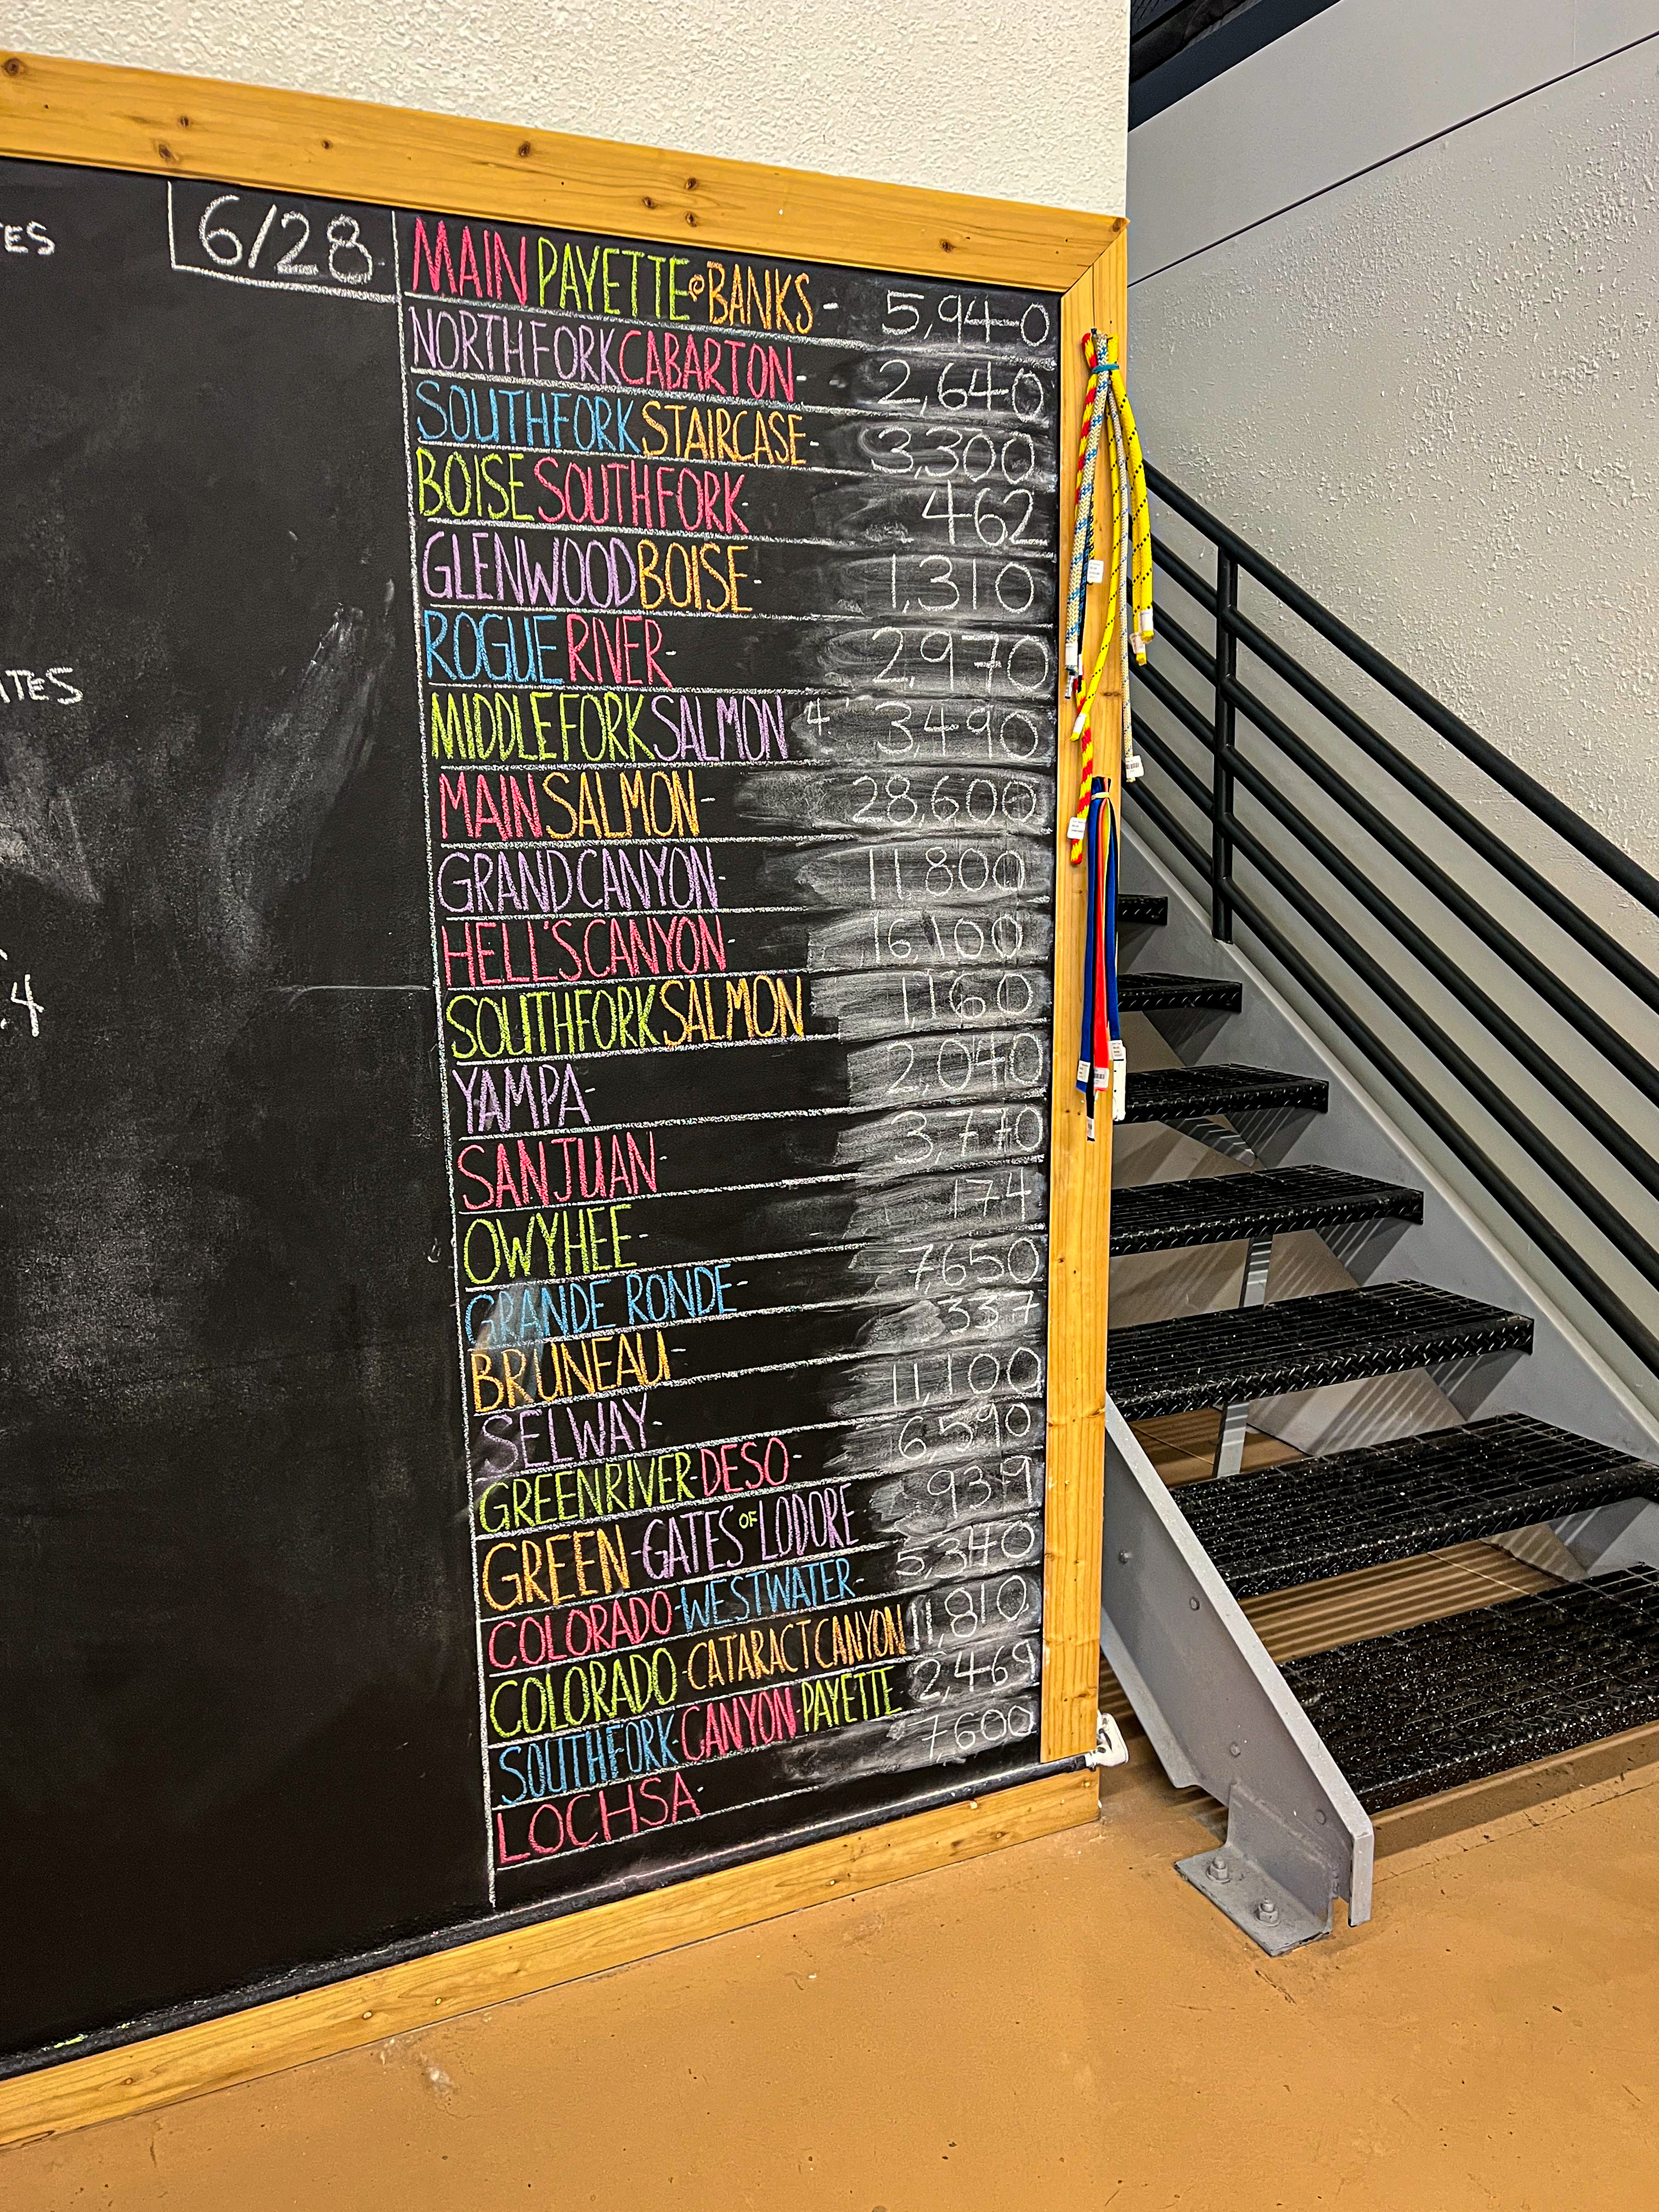 6/28
MAIN PAYETTE @ BANKS - 5,940
NORTH FORK CABARTON - 2,640
SOUTH FORK STAIRCASE - 3,300
BOISE SOUTH FORK - 462
GLENWOOD BOISE - 1,310
ROGUE RIVER - 2,970
MIDDLE FORK SALMON 4' 3,490
MAIN SALMON - 28,600
GRAND CANYON - 11,800
HELL'S CANYON - 16,100
SOUTH FORK SALMON 1,160
YAMPA - 2,040
SAN JUAN - 3,770
OWYHEE - 174
GRANDE RONDE - 7650
BRUNEAU - 337
SELWAY - 11,100
GREEN RIVER-DESO - 6590
GREEN-GATES OF LODORE 939
COLORADO-WESTWATER - 5,340
COLORADO-CATARACT CANYON 11,810
SOUTH FORK-CANYON-PAYETTE 2,469
LOCHSA - 7,600